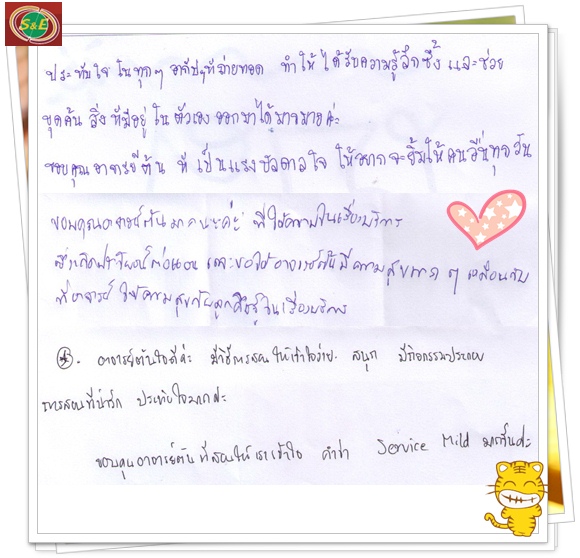 S&E
ประทับใจ ในทุกๆ อากัปฯที่ถ่ายทอด ทำให้ได้รับความรู้ลึกซึ้ง และช่วย
ขุดค้น สิ่งที่มีอยู่ ในตัวเอง ออกมาได้มากมายค่ะ
ขอบคุณอาจารย์ต้น ที่เป็นแรงบันดาลใจ ให้อยากจะยิ้มให้คนอื่นทุกวัน
ขอบคุณอาจารย์ต้นมากนะค่ะ ที่ให้ความในเรื่องบริการ
และขอให้อาจารย์ต้นมีความสุขมาก ๆ เหมือนกับ
ที่อาจารย์ ให้ความสุขกับลูกศิษย์ในเรื่องบริการ
อาจารย์ต้นใจดีค่ะ มีวิธีการสอนให้เข้าใจง่าย สนุก มีกิจกรรมประกอบ
การสอนที่น่ารัก ประทับใจมากค่ะ
ขอบคุณอาจารย์ต้นที่สอนให้เราเข้าใจ คำว่า Service Mild มากขึ้นค่ะ